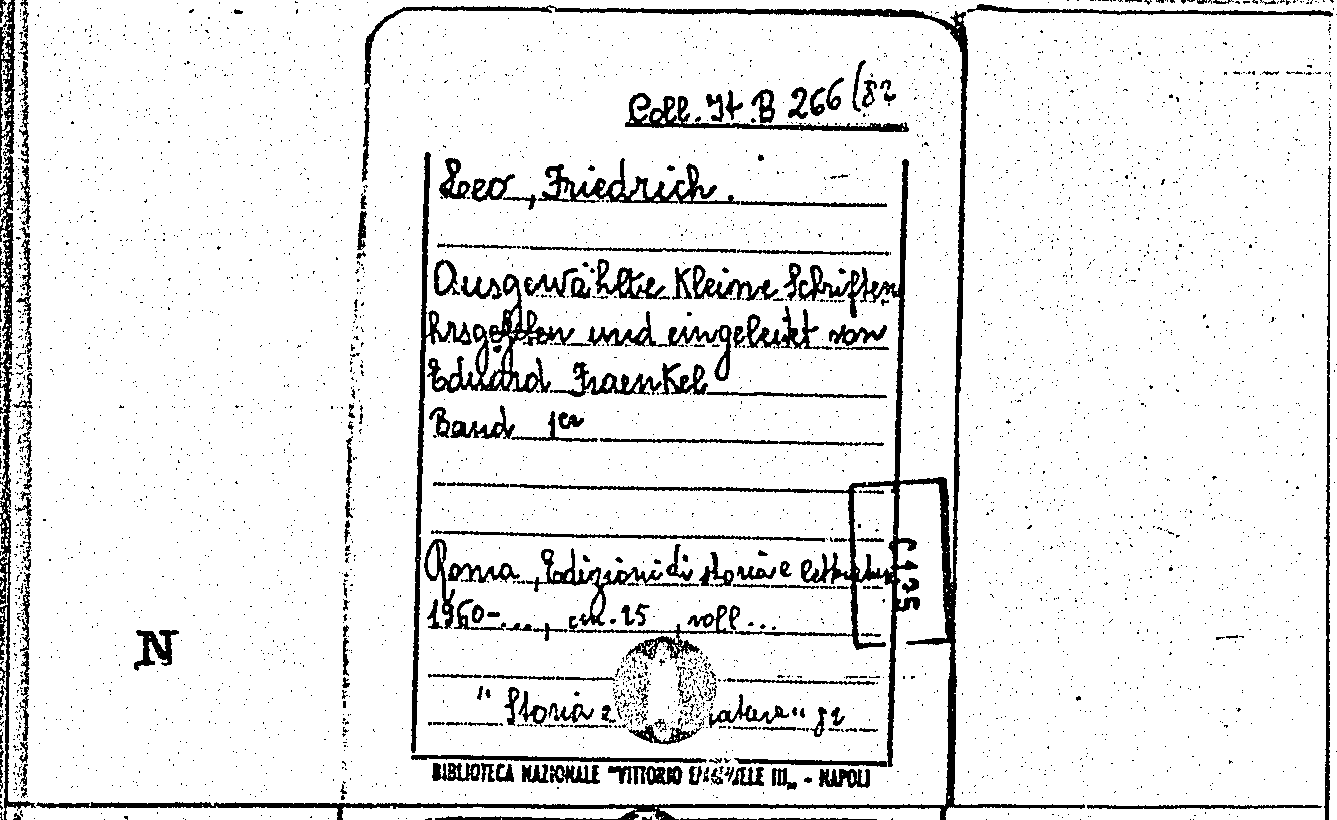 Coll. It. B 266 (82
Leo, Friedrich.
Ausgewählte Kleine Schriften
und eingeleitet von
Eduard Fraenkel
Band 1er
Roma, Edizioni di storia e letteratura
1960-..., cm. 25, voll...
"Storia e
82
BIBLIOTECA NAZIONALE "VITTORIO EMANUELE III" - NAPOLI
N